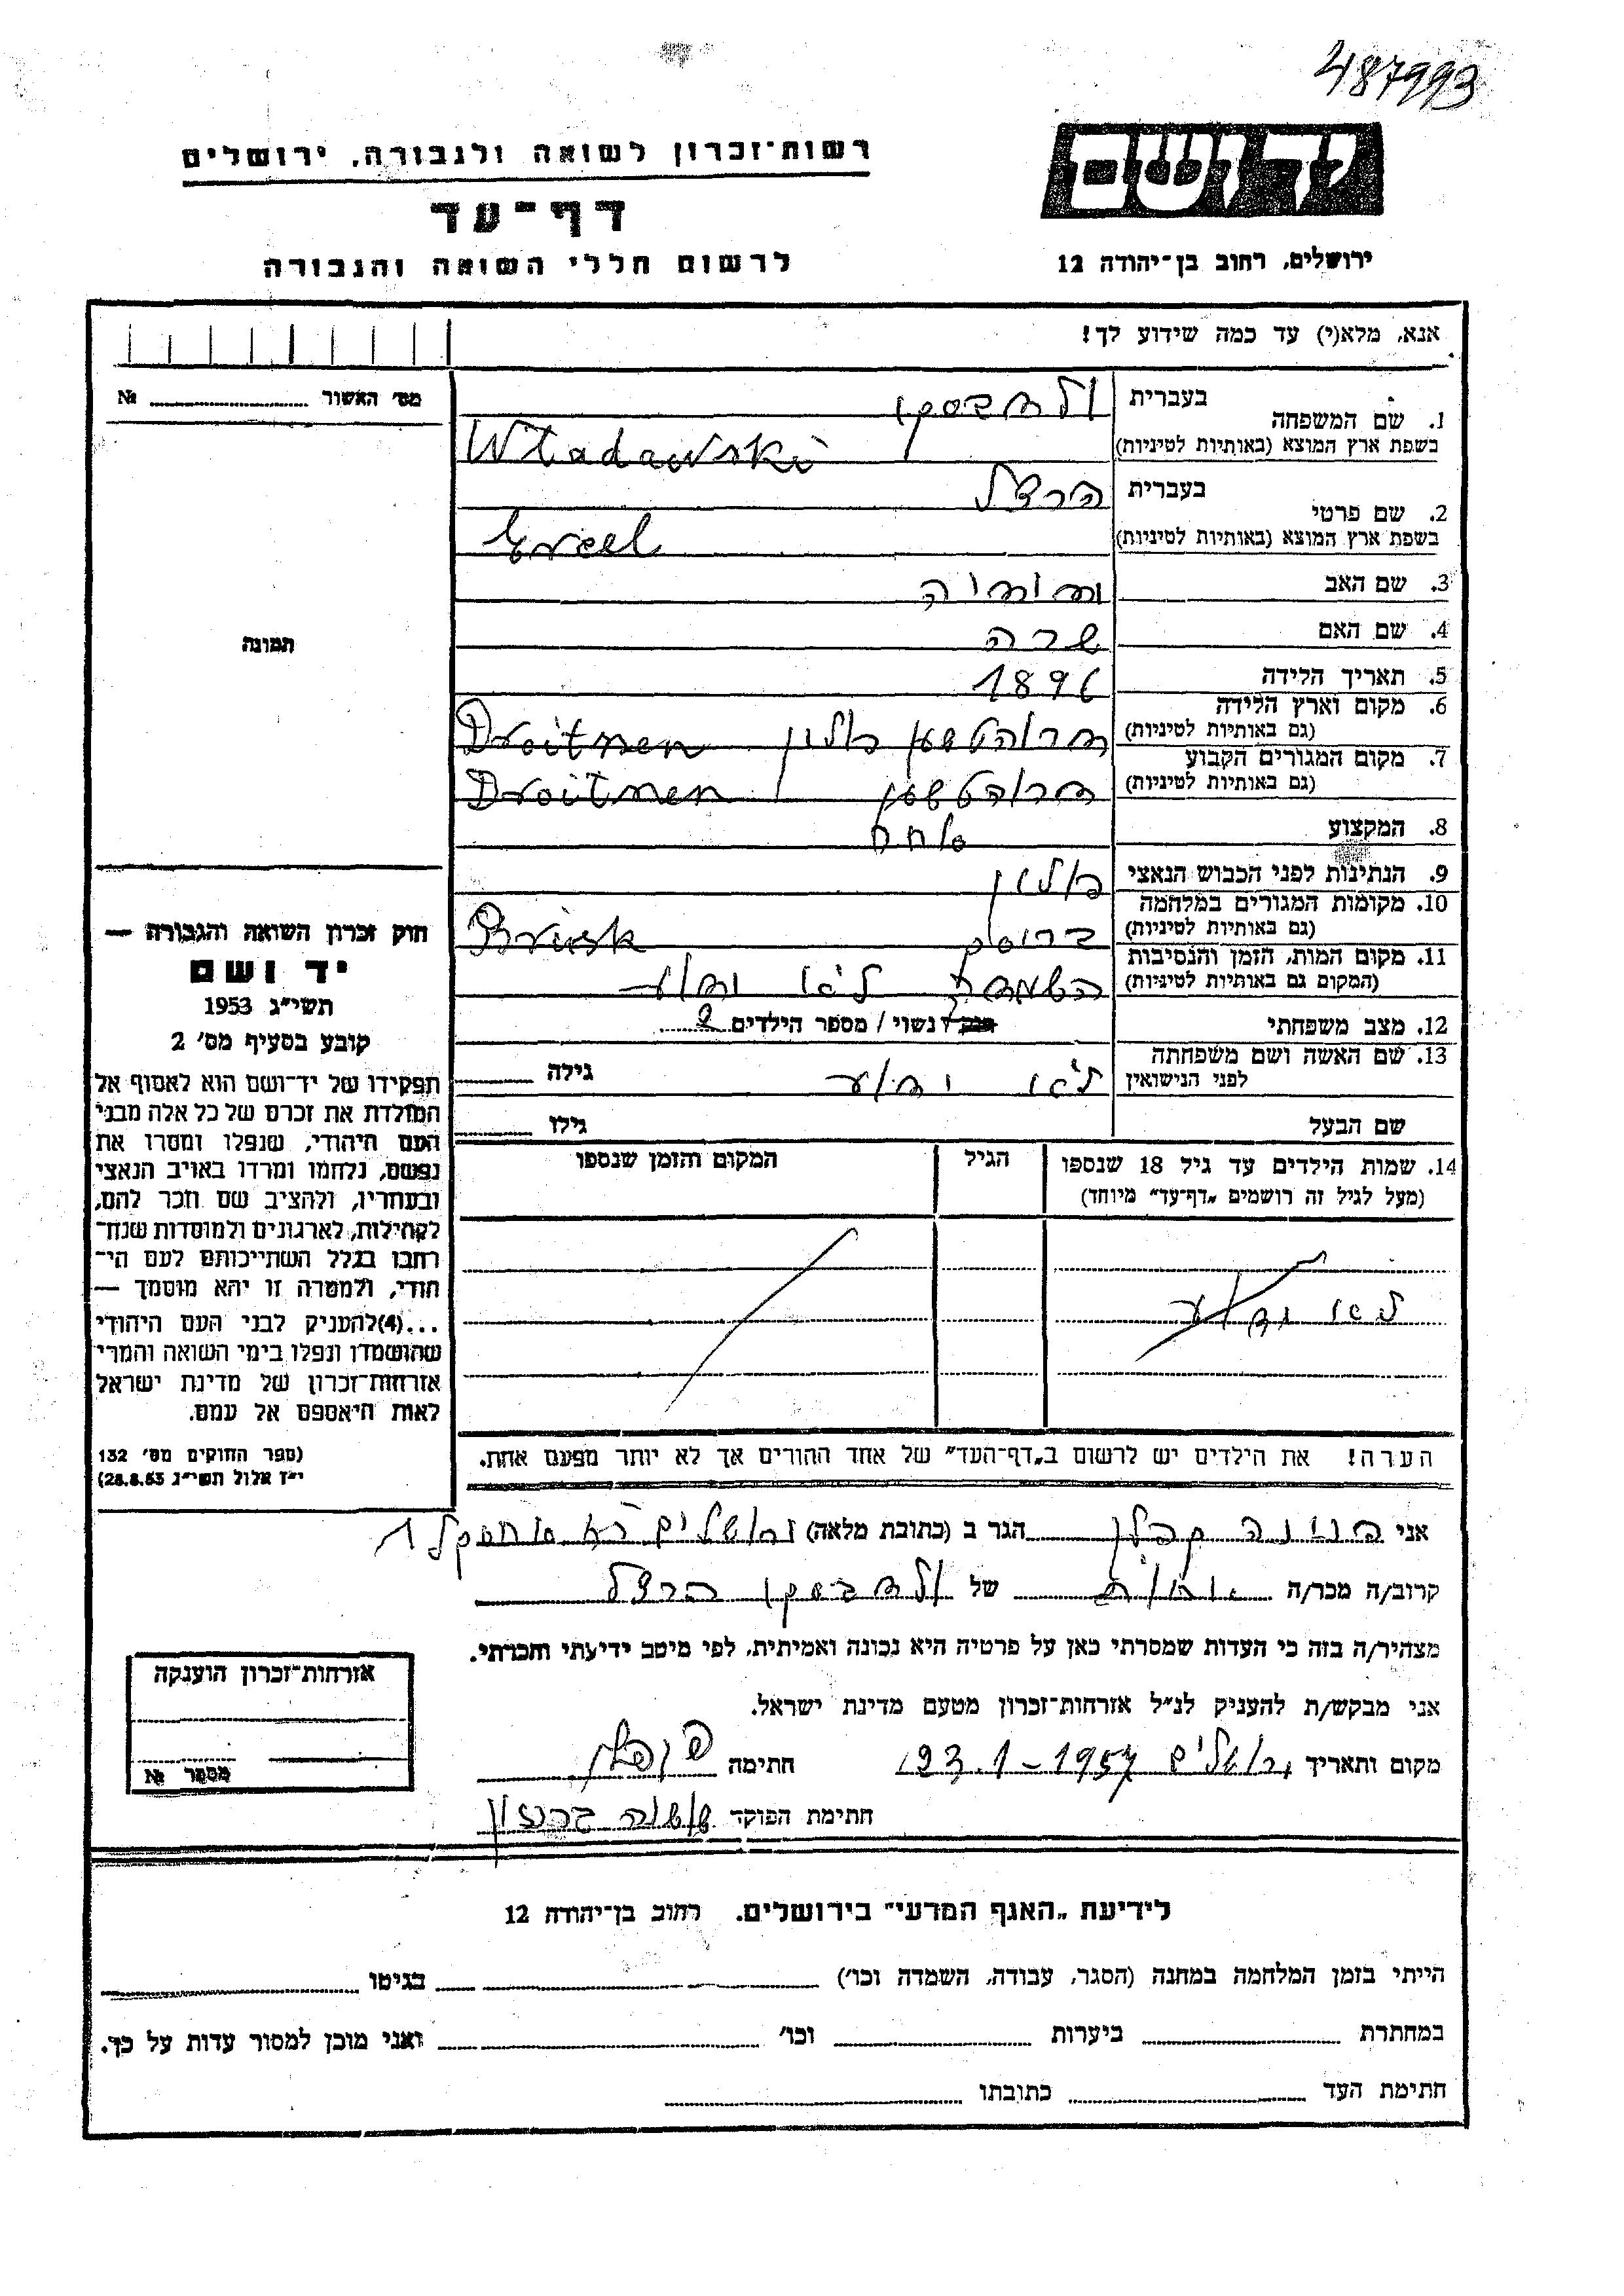 487993
רשות־זכרון לשואה ולגבורה, ירושלים
דף־עד
לרשום חללי השואה והגבורה
יד ושם
ירושלים, רחוב בן־יהודה 12
אנא, מלא(י) עד כמה שידוע לך!
מס' האשור №
1. שם המשפחה
בעברית
בשפת ארץ המוצא (באותיות לטיניות)
Wladawski
2. שם פרטי
בעברית הרצל
בשפת ארץ המוצא (באותיות לטיניות) Ercel
3. שם האב נחמיה
4. שם האם שרה
5. תאריך הלידה 1896
6. מקום וארץ הלידה
(גם באותיות לטיניות) פולין
7. מקום המגורים הקבוע
(גם באותיות לטיניות)
8. המקצוע
9. הנתינות לפני הכבוש הנאצי פולין
10. מקומות המגורים במלחמה
(גם באותיות לטיניות) בריסק Brisk
11. מקום המות, הזמן והנסיבות
(המקום גם באותיות לטיניות) לא ידוע
12. מצב משפחתי רווק / נשוי / מספר הילדים 2
13. שם האשה ושם משפחתה
לפני הנישואין לא ידוע גילה
שם הבעל גילו
תמונה
חוק זכרון השואה והגבורה —
יד ושם
תשי״ג 1953
קובע בסעיף מס' 2
תפקידו של יד־ושם הוא לאסוף אל
המולדת את זכרם של כל אלה מבני
העם היהודי, שנפלו ומסרו את
נפשם, נלחמו ומרדו באויב הנאצי
ובעוזריו, ולהציב שם וזכר להם,
לקהילות, לארגונים ולמוסדות שנח־
רבו בגלל השתייכותם לעם הי־
הודי, ולמטרה זו יהא מוסמך —
...(4) להעניק לבני העם היהודי
שהושמדו ונפלו בימי השואה והמרי
אזרחות־זכרון של מדינת ישראל
לאות היאספם אל עמם.
(ספר החוקים מס' 132
י״ז אלול תשי״ג 28.8.53)
14. שמות הילדים עד גיל 18 שנספו
(מעל לגיל זה רושמים „דף־עד" מיוחד)
הגיל
המקום והזמן שנספו
לא ידוע
הערה! את הילדים יש לרשום ב„דף־העד" של אחד ההורים אך לא יותר מפעם אחת.
אני קפלן הגר ב (כתובת מלאה) ירושלים
קרוב/ה מכר/ה אחות של הרצל
מצהיר/ה בזה כי העדות שמסרתי כאן על פרטיה היא נכונה ואמיתית, לפי מיטב ידיעתי והכרתי.
אני מבקש/ת להעניק לנ״ל אזרחות־זכרון מטעם מדינת ישראל.
מקום ותאריך ירושלים 23.1-1957 חתימה
חתימת הפוקד
אזרחות־זכרון הוענקה
מספר №
לידיעת „האגף המדעי" בירושלים, רחוב בן־יהודה 12
הייתי בזמן המלחמה במחנה (הסגר, עבודה, השמדה וכו') בגיטו
במחתרת ביערות וכו' ואני מוכן למסור עדות על כך.
חתימת העד כתובתו